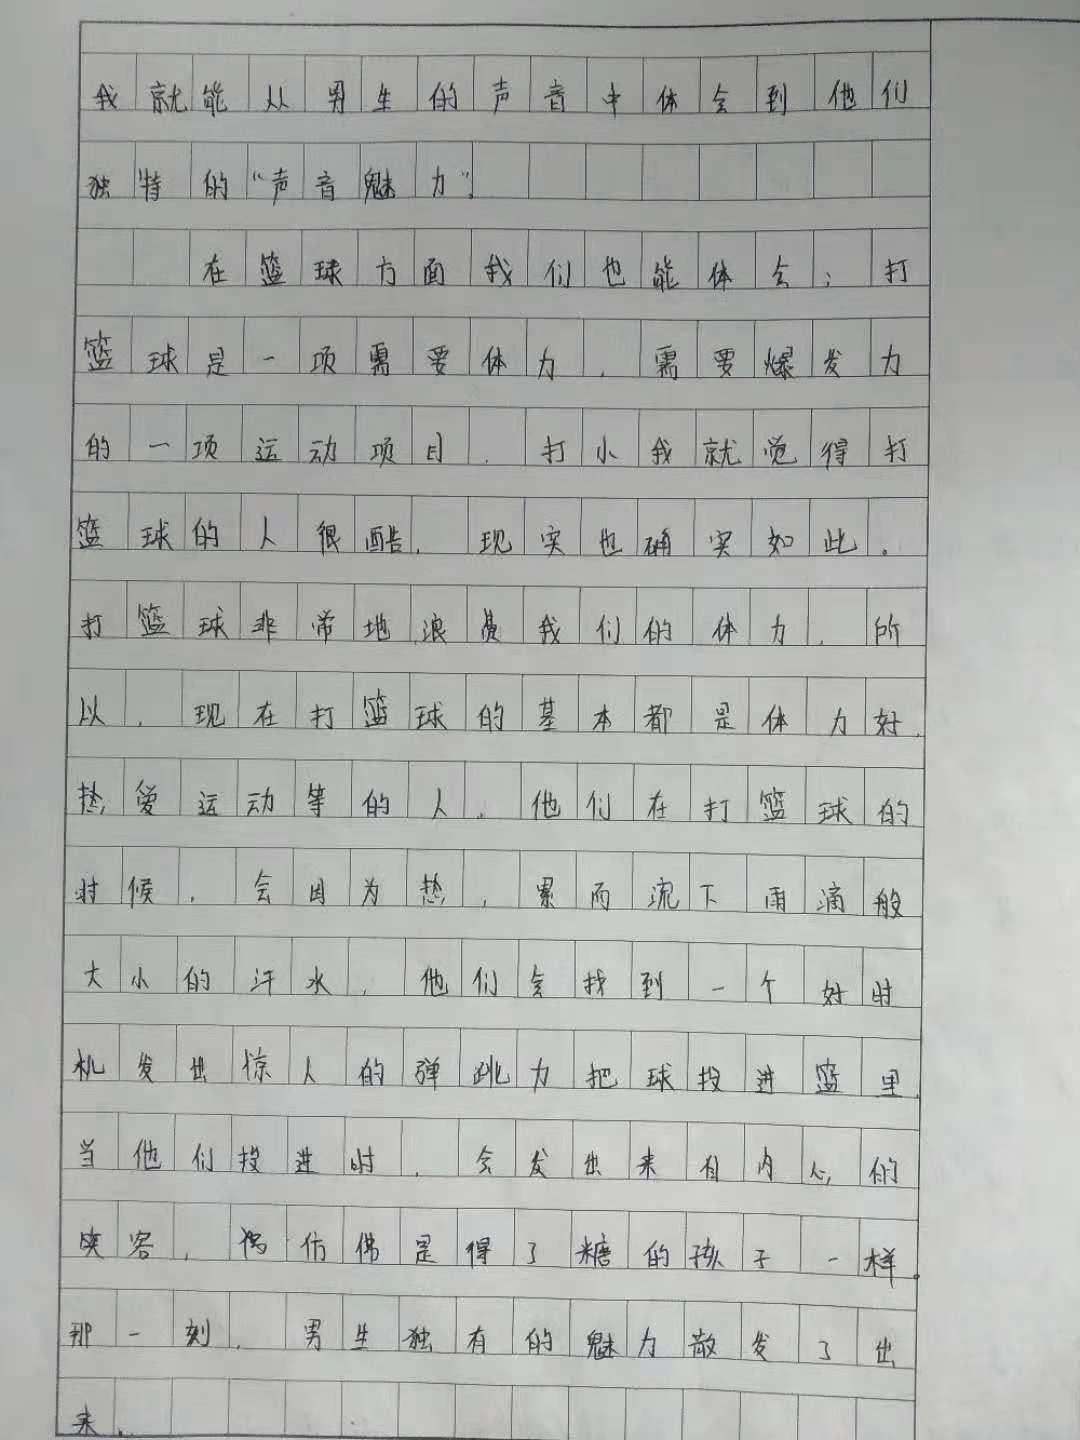 我就能从男生的声音中体会到他们
独特的“声音魅力”。
在篮球方面我们也能体会；打
篮球是一项需要体力，需要爆发力
的一项运动项目，打小我就觉得打
篮球的人很酷，现实也确实如此。
打篮球非常地浪费我们的体力，所
以，现在打篮球的基本都是体力好，
热爱运动等的人，他们在打篮球的
时候，会因为热，累而流下雨滴般
大小的汗水，他们会找到一个好时
机发出惊人的弹跳力把球投进篮里，
当他们投进时，会发出来自内心的
笑容，仿佛是得了糖的孩子一样。
那一刻，男生独有的魅力散发了出
来。